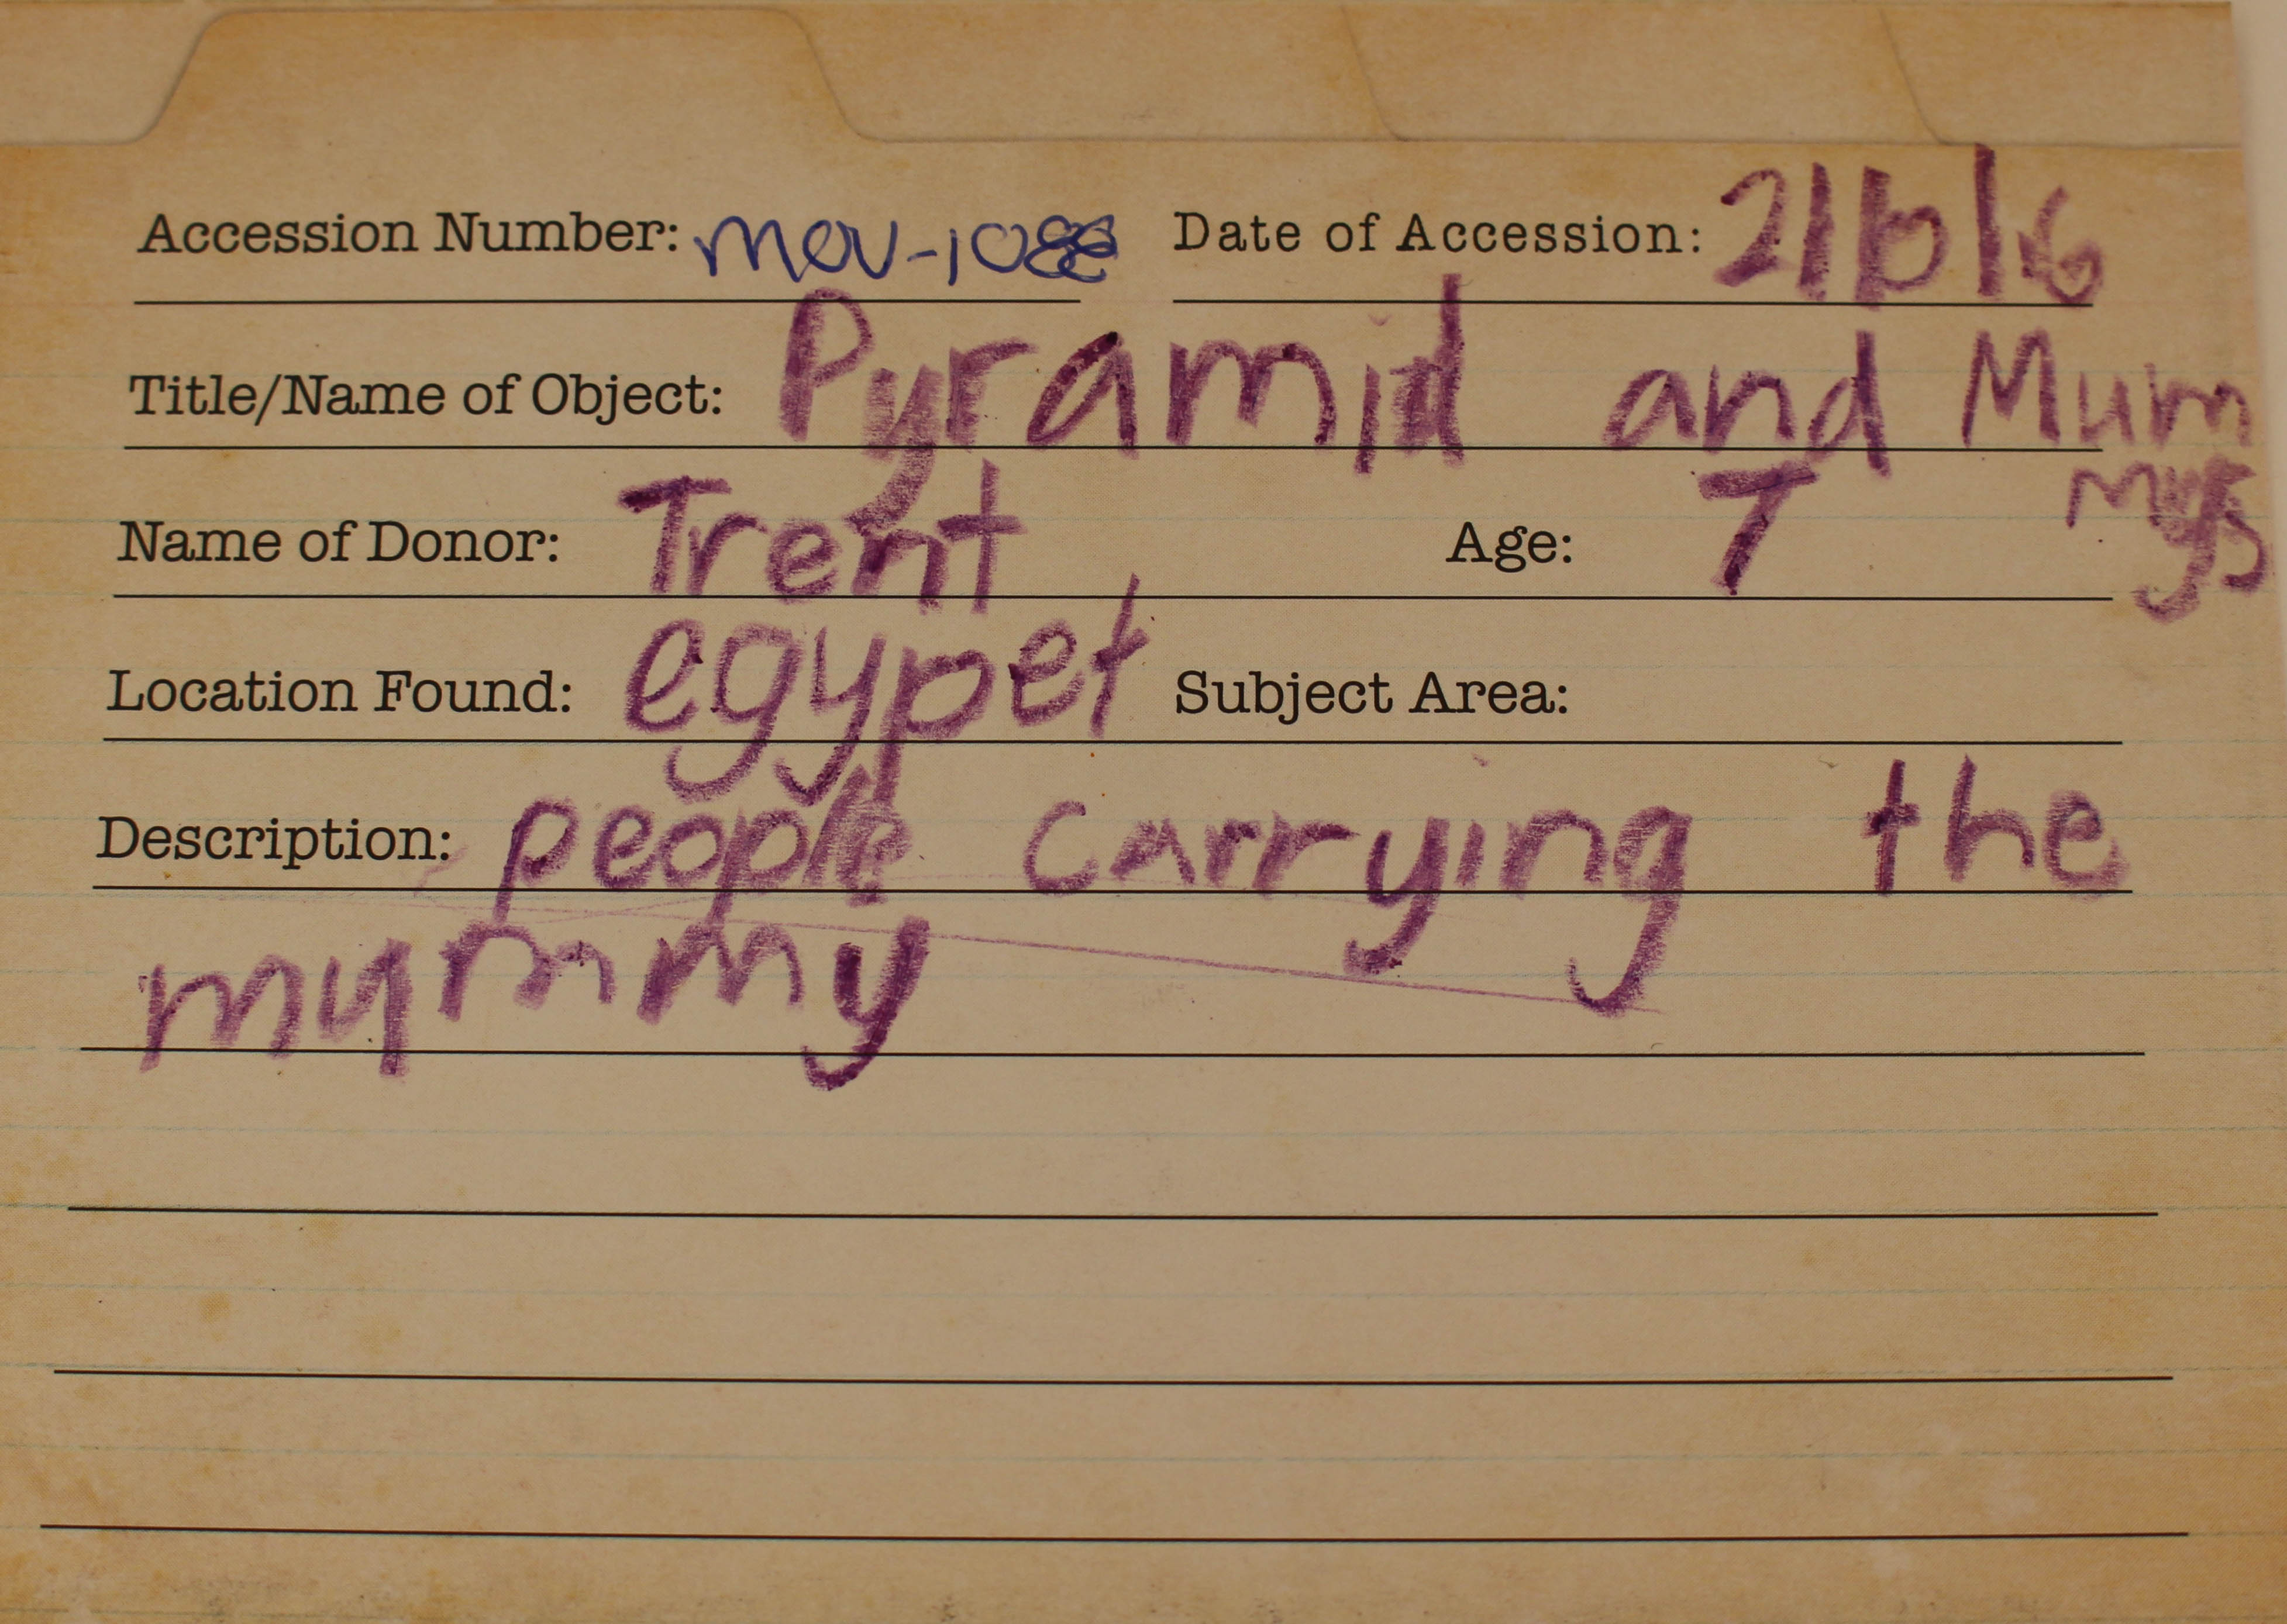 Accession Number: Date of Accession:
Title/Name of Object: Pyramid and Mum
mys
Name of Donor: Trent Age: 7
Location Found: egypet Subject Area:
Description: people carrying the
mummy